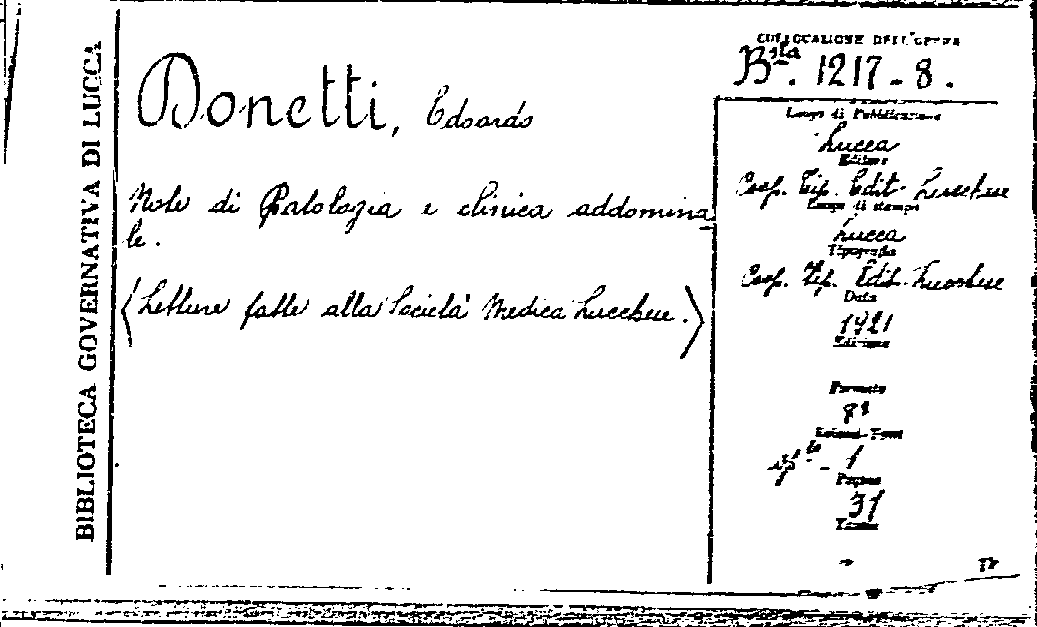 BIBLIOTECA GOVERNATIVA DI LUCCA
Donetti, Edoardo
Note di Patologia e clinica addomina
le.
(Letture fatte alla Società Medica Lucchese.)
COLLOCAZIONE DELL'OPERA
Bsta. 1217-8.
Luogo di Pubblicazione
Lucca
Editore
Coop. Tip. Edit. Lucchese
Luogo di stampa
Lucca
Tipografia
Coop. Tip. Edit. Lucchese
Data
1921
Edizione
Formato
8º
1
Pagine
31